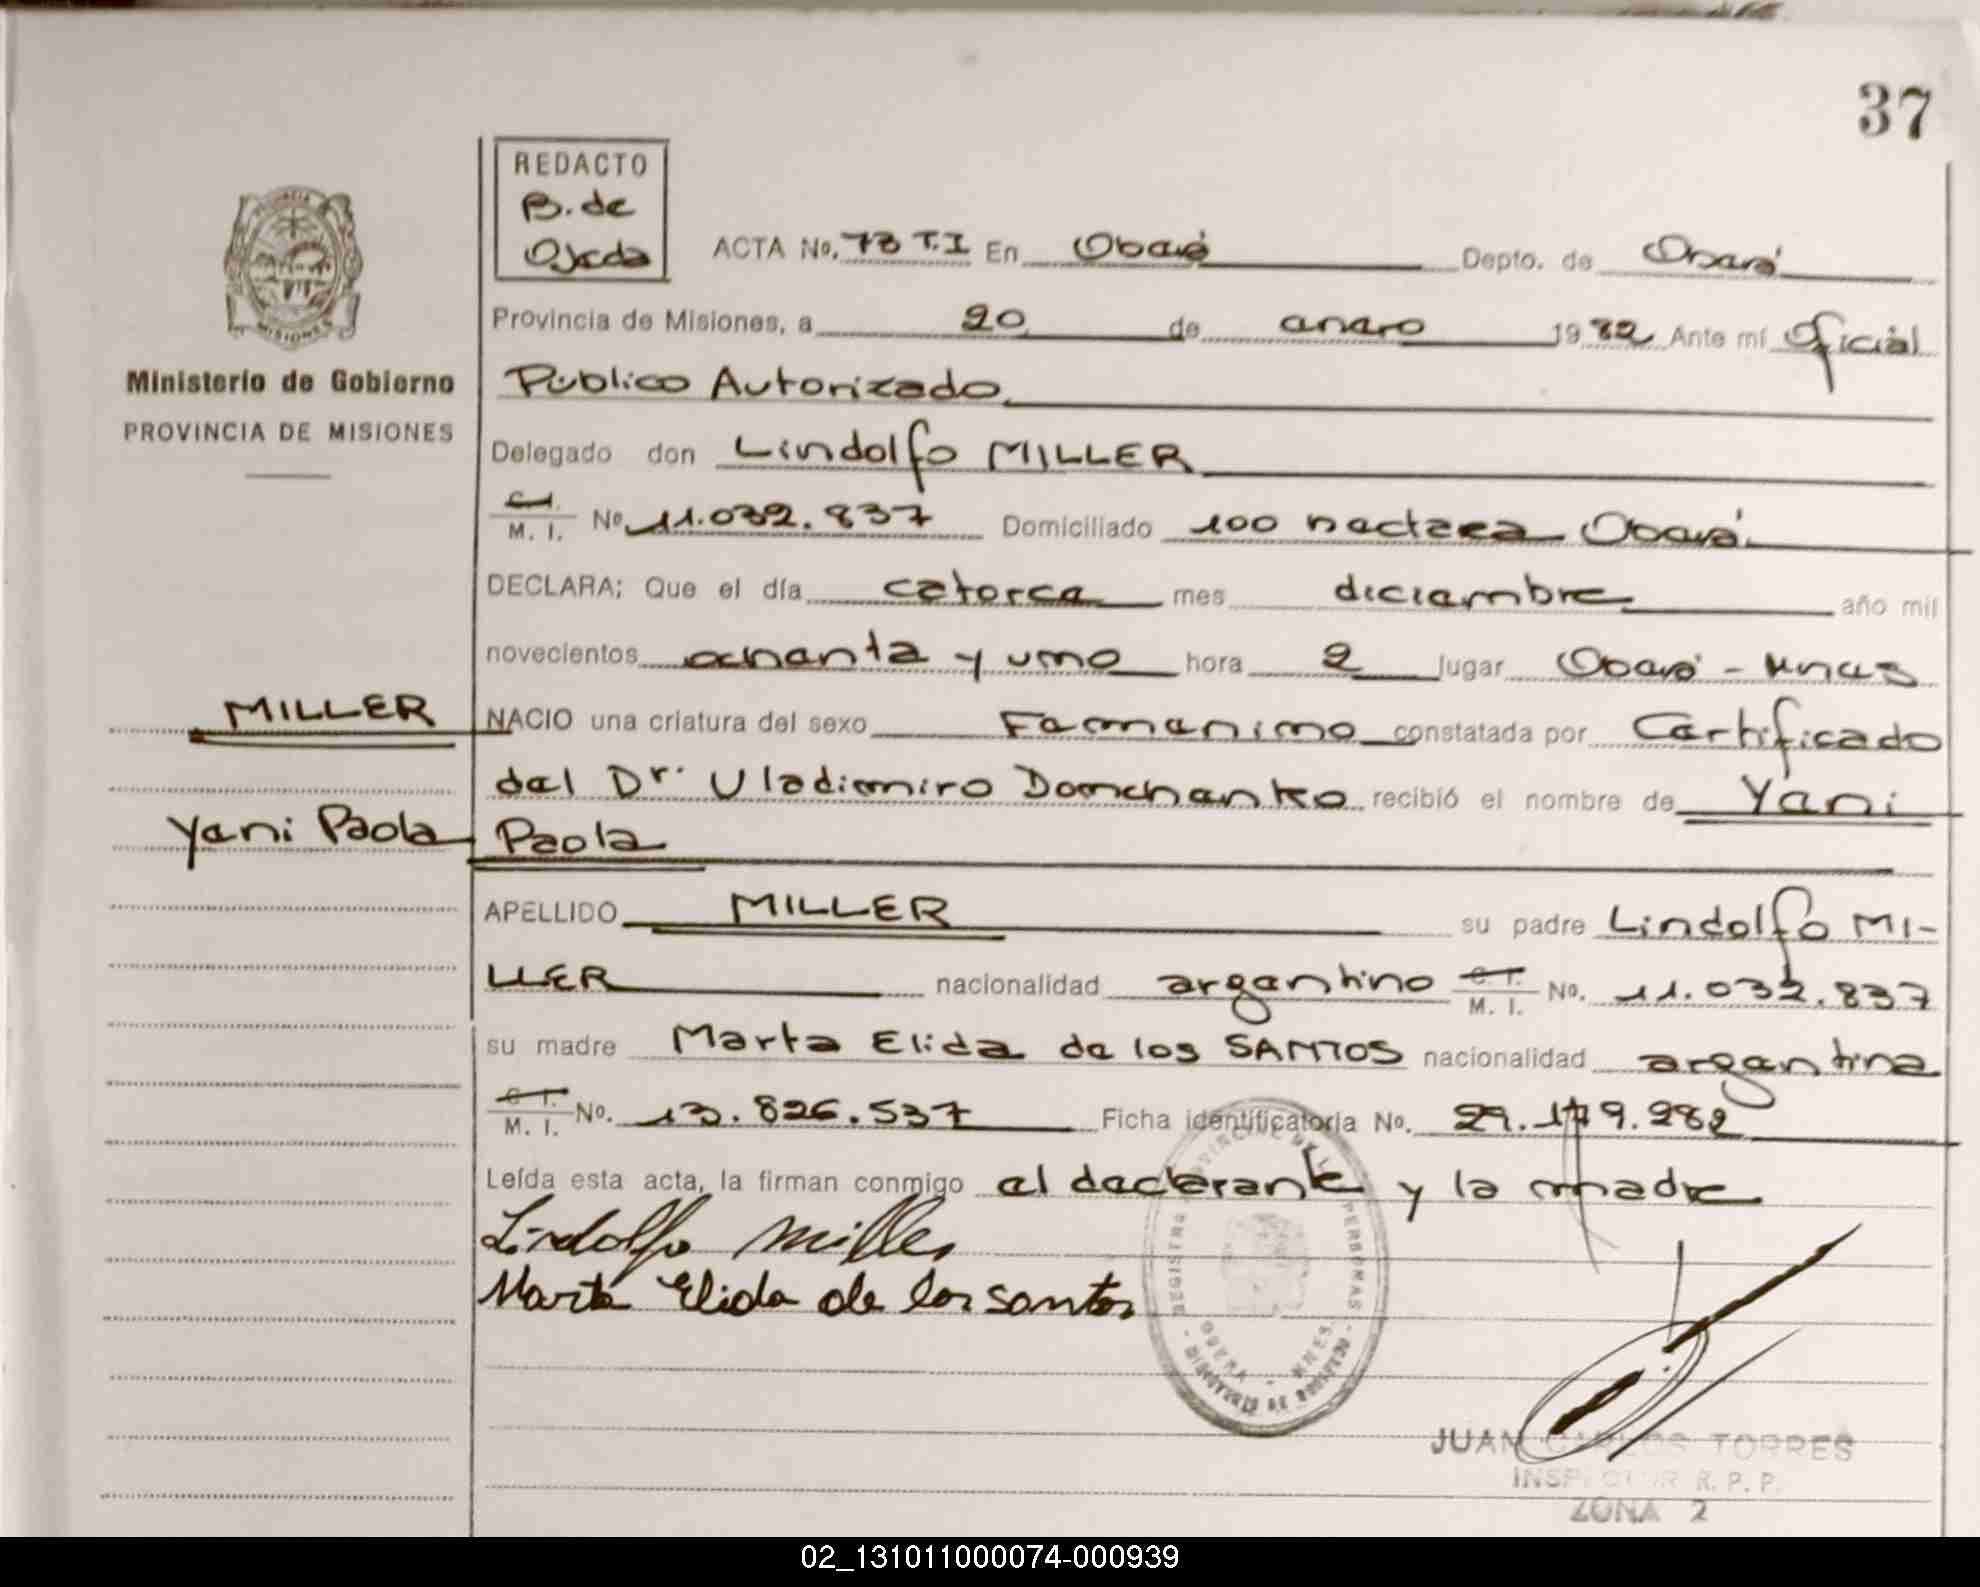 37
REDACTO
B. de
Ojeda
ACTA No. 73 T.I En Oberá Depto. de Oberá
Provincia de Misiones, a 20 de enero 1982 Ante mí Oficial
Ministerio de Gobierno
PROVINCIA DE MISIONES
Público Autorizado
Delegado don Lindolfo MILLER
C.I. M. I. No 11.032.837 Domiciliado 100 hectarea Oberá
DECLARA; Que el día catorce mes diciembre año mil
novecientos ochenta y uno hora 2 lugar Oberá - Mnes
MILLER
NACIO una criatura del sexo Femenino constatada por Certificado
del Dr. Uladimiro Domchenko recibió el nombre de Yani
Yani Paola
Paola
APELLIDO MILLER su padre Lindolfo MI-
LLER nacionalidad argentino C. I. M. I. No. 11.032.837
su madre Marta Elida de los SANTOS nacionalidad argentina
C I. M. I. No. 13.826.537 Ficha identificatoria No. 29.179.282
Leída esta acta, la firman conmigo el declarante y la madre
Lindolfo Miller
Marta Elida de los santos
JUAN CARLOS TORRES
INSPECTOR R. P. P.
ZONA 2
02_131011000074-000939